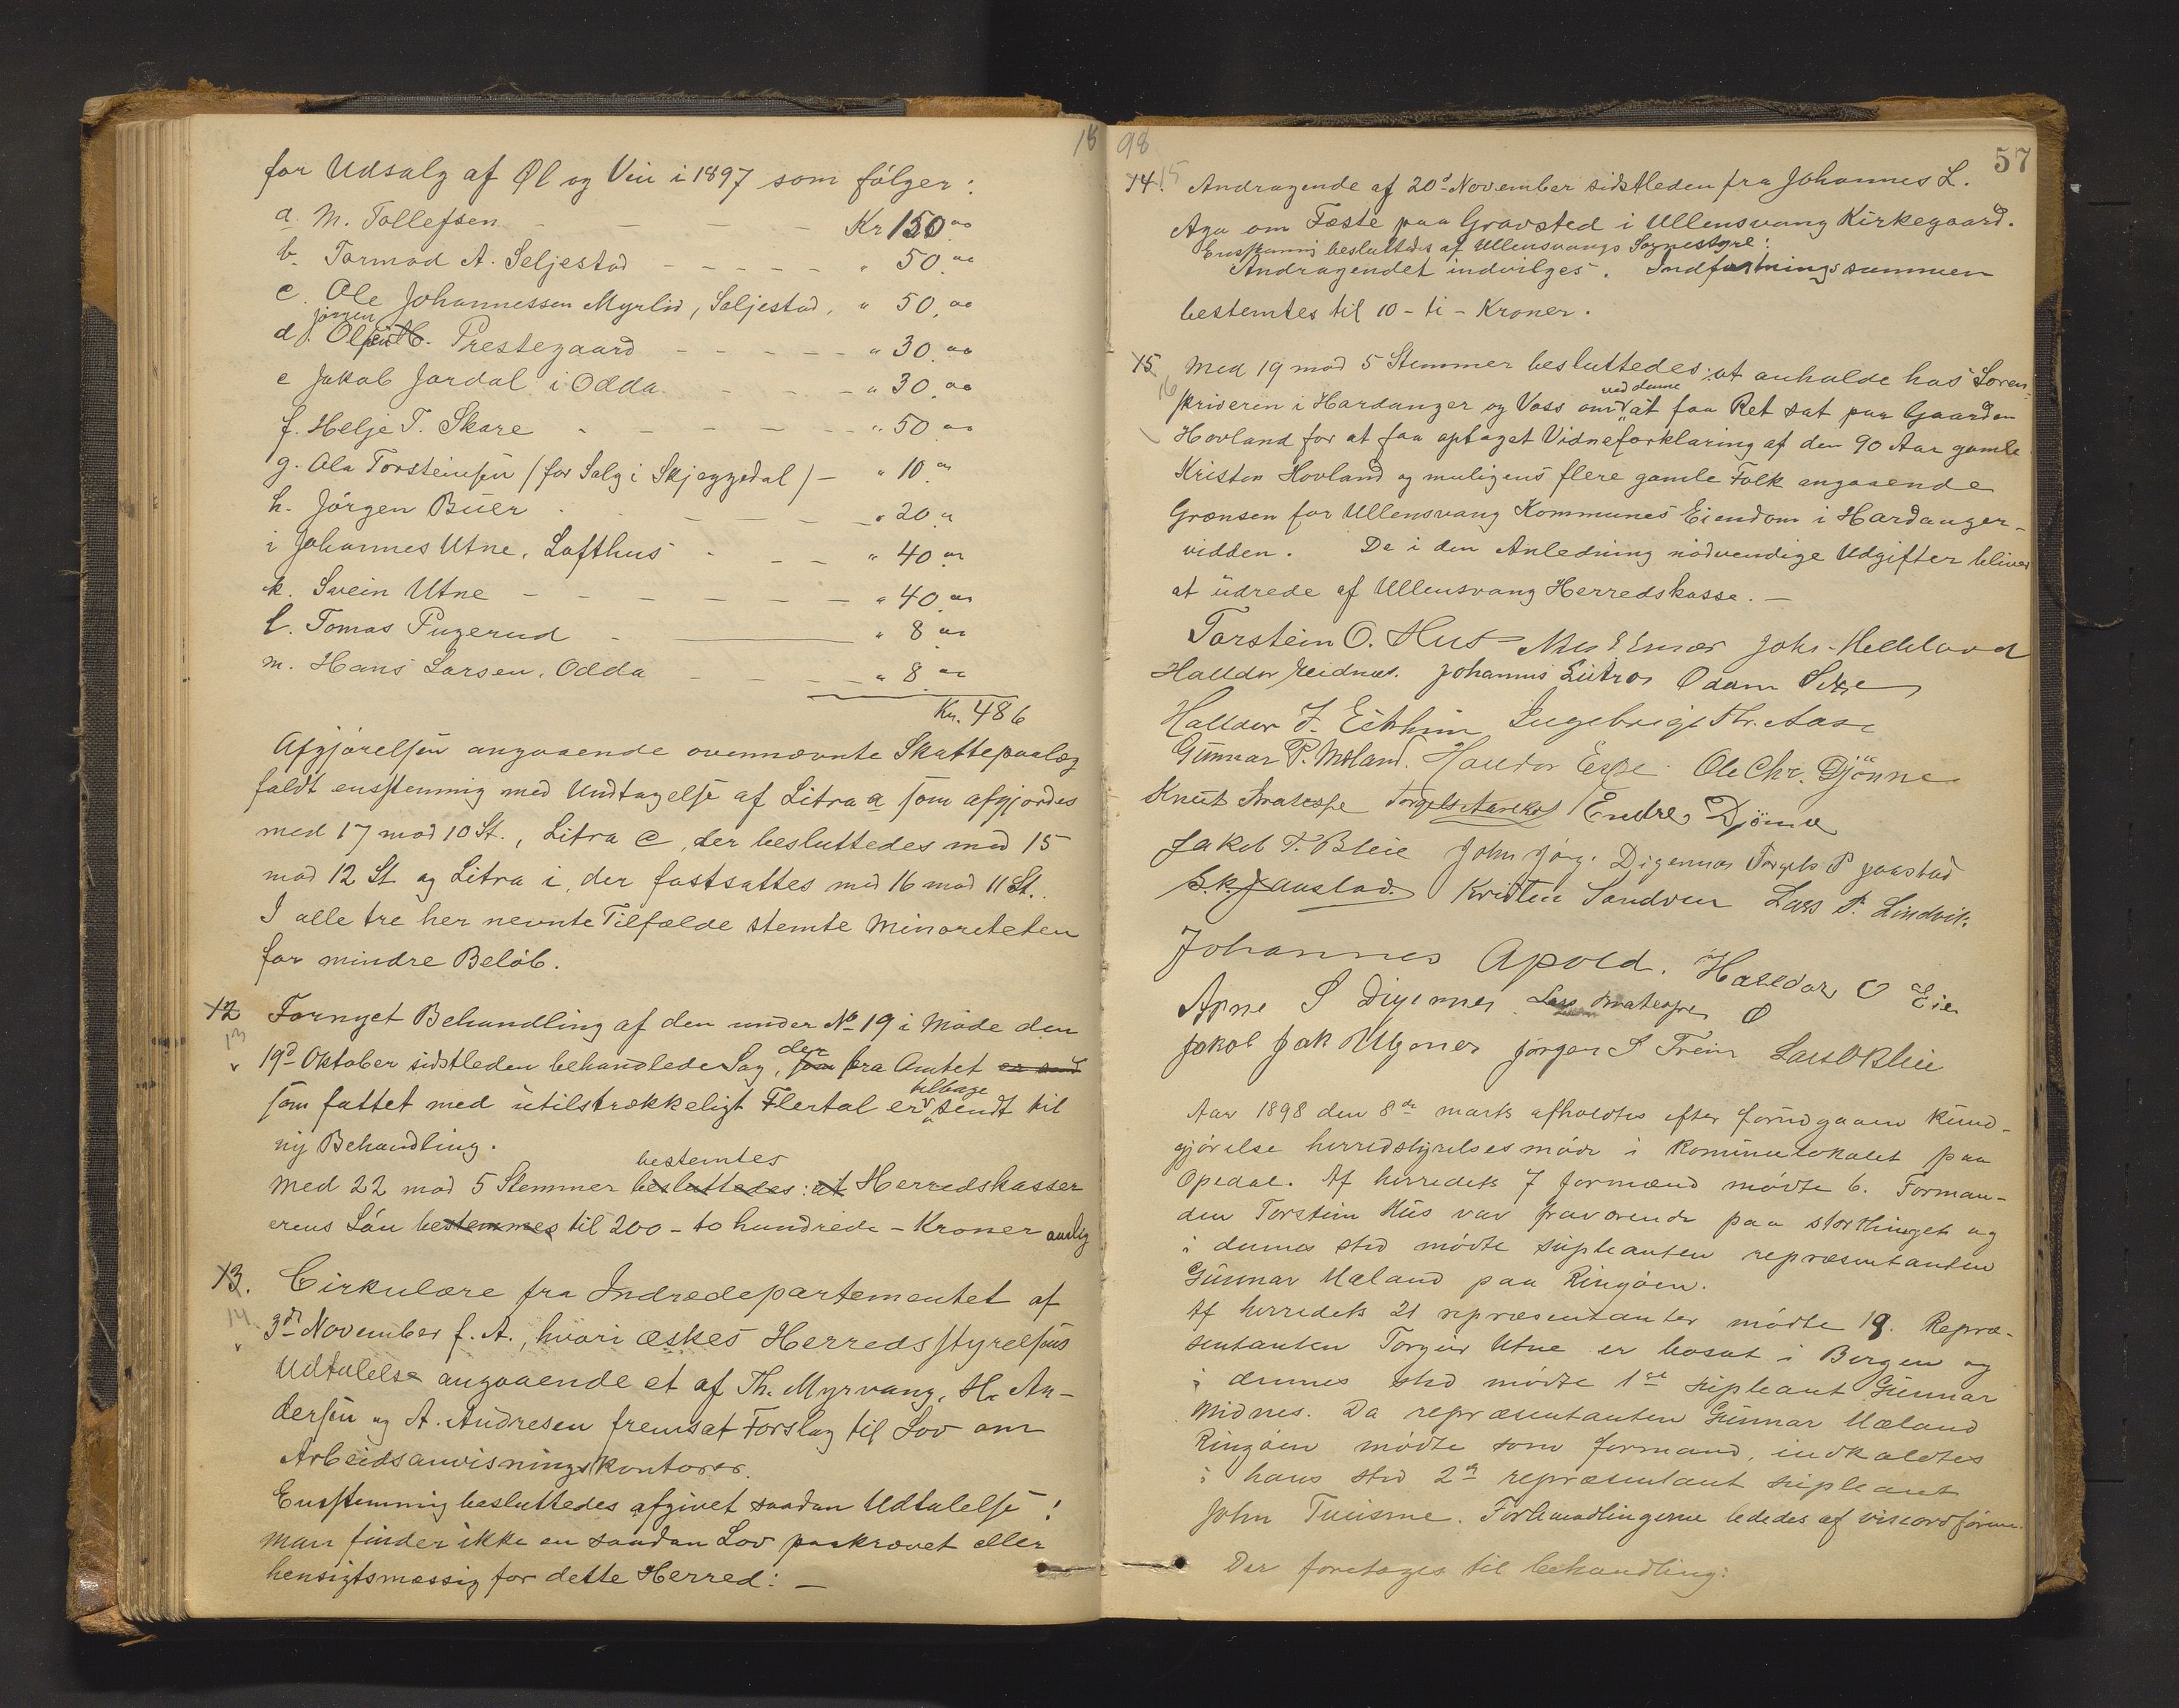 18
for Udsalg af Øl og Vin i 1897 som følger:
a. M. Tollefsen - - - - Kr 150.00
b. Tormod A. Seljestad - - - - - " 50.00
c. Ole Johannessen Myrlid, Seljestad, " 50.00
Jørgen
d. Olsen H. Prestegaard - - - - - " 30.00
e Jakob Jordal i Odda. - - - " 30.00
f. Helje T. Skare - - - - - - " 50.00
g. Ola Torsteinsen (for Salg i Skjeggedal) - " 10.00
h. Jørgen Buer - - - - - " 20.00
i Johannes Utne, Lofthus - - - " 40.00
k. Svein Utne - - - - - - - " 40.00
l. Tomas Pugerud - " 8.00
m. Hans Larsen, Odda - - - - - " 8.00
Kr. 486
Afgjørelsen angaaende ovennævnte Skattepaalæg
faldt enstemmig med Undtagelse af Litra a som afgjordes
med 17 mod 10 St., Litra c, der besluttedes med 15
mod 12 St og Litra i, der fastsattes med 16 mod 11 St.
I alle tre her nevnte Tilfælde stemte Minoriteten
for mindre Beløb.
12 Fornyet Behandling af den under No 19 i Møde den
13
der
19d Oktober sidstleden behandlede Sag, som fra Amtet er send
tilbage
som fattet med utilstrækkeligt Flertal er sendt til
ny Behandling.
bestemtes
Med 22 mod 5 Stemmer besluttedes: at Herredskasser
erens Løn bestemmes til 200 - to hundrede - Kroner aarlig
13. Cirkulære fra Indredepartementet af
14.
3die November f. A., hvori æskes Herredsstyrelsens
Udtalelse angaaende et af Th. Myrvang, H. An-
dersen og A. Andresen fremsat Forslag til Lov om
Arbeidsanvisningskontorer.
Enstemmig besluttedes afgivet saadan Udtalelse:
Man finder ikke en saadan Lov paakrævet eller
hensigtsmæssig for dette Herred: -
98
57
14. 15 Andragende af 20de November sidstleden fra Johannes L.
Aga om Fæste paa Gravsted i Ullensvang Kirkegaard.
Enstemmig besluttedes af Ullensvangs Sognestyre:
Andragendet indvilges. Indfæstningssummen
bestemtes til 10 - ti - Kroner.
15. Med 19 mod 5 Stemmer besluttedes: at anholde hos Soren-
16
ved denne
skriveren i Hardanger og Voss om at faa Ret sat paa Gaarden
Hovland for at faa optaget Vidneforklaring af den 90 Aar gamle
Kristen Hovland og muligens flere gamle Folk angaaende
Grænsen for Ullensvang Kommunes Eiendom i Hardanger-
vidden. De i den Anledning nødvendige Udgifter bliver
at udrede af Ullensvang Herredskasse. -
Torstein O. Hus Johs. Helleland
Halldor Reidnes. Johannes Lutro Odam Sexe
Halldor J. Eikhim Ingebrigt Th. Aase
Gunnar P. Mæland. Haldor Espe. Ole Chr. Djønne
Knut Bratespe Torgils Aarekol Endre Djønne
Jakob T. Bleie John Jørg. Digernes Torgils P Jaastad
S.K. Jaastad. Kristen Sandven Lars P. Lindvik
Johannes Apold. Halldor O Eie
Arne S Digernes Lars Bratespe
Jakob Jak Ulgenes Jørgen S Freim Lars O Bleie
Aar 1898 den 8de marts afholdtes efter forudgaaen kund-
gjørelse herredstyrelsesmøde i Kommunelokalet paa
Opedal. Af herredets 7 formænd mødte 6. Forman-
den Torstein Hus var fraværende paa storthinget og
i dennes sted mødte supleanten repræsentanten
Gunnar Mæland paa Ringøen.
Af herredets 21 repræsentanter mødte 19. Repræ-
sentanten Torgeir Utne er bosat i Bergen og
i dennes sted mødte 1ste supleant Gunnar
Midnes. Da repræsentanten Gunnar Mæland
Ringøen mødte som formand, indkaldtes
i hans sted 2den repræsentant supleant
John Tveisme. Forhandlingerne lededes af viseordføren.
Der foretages til behandling: